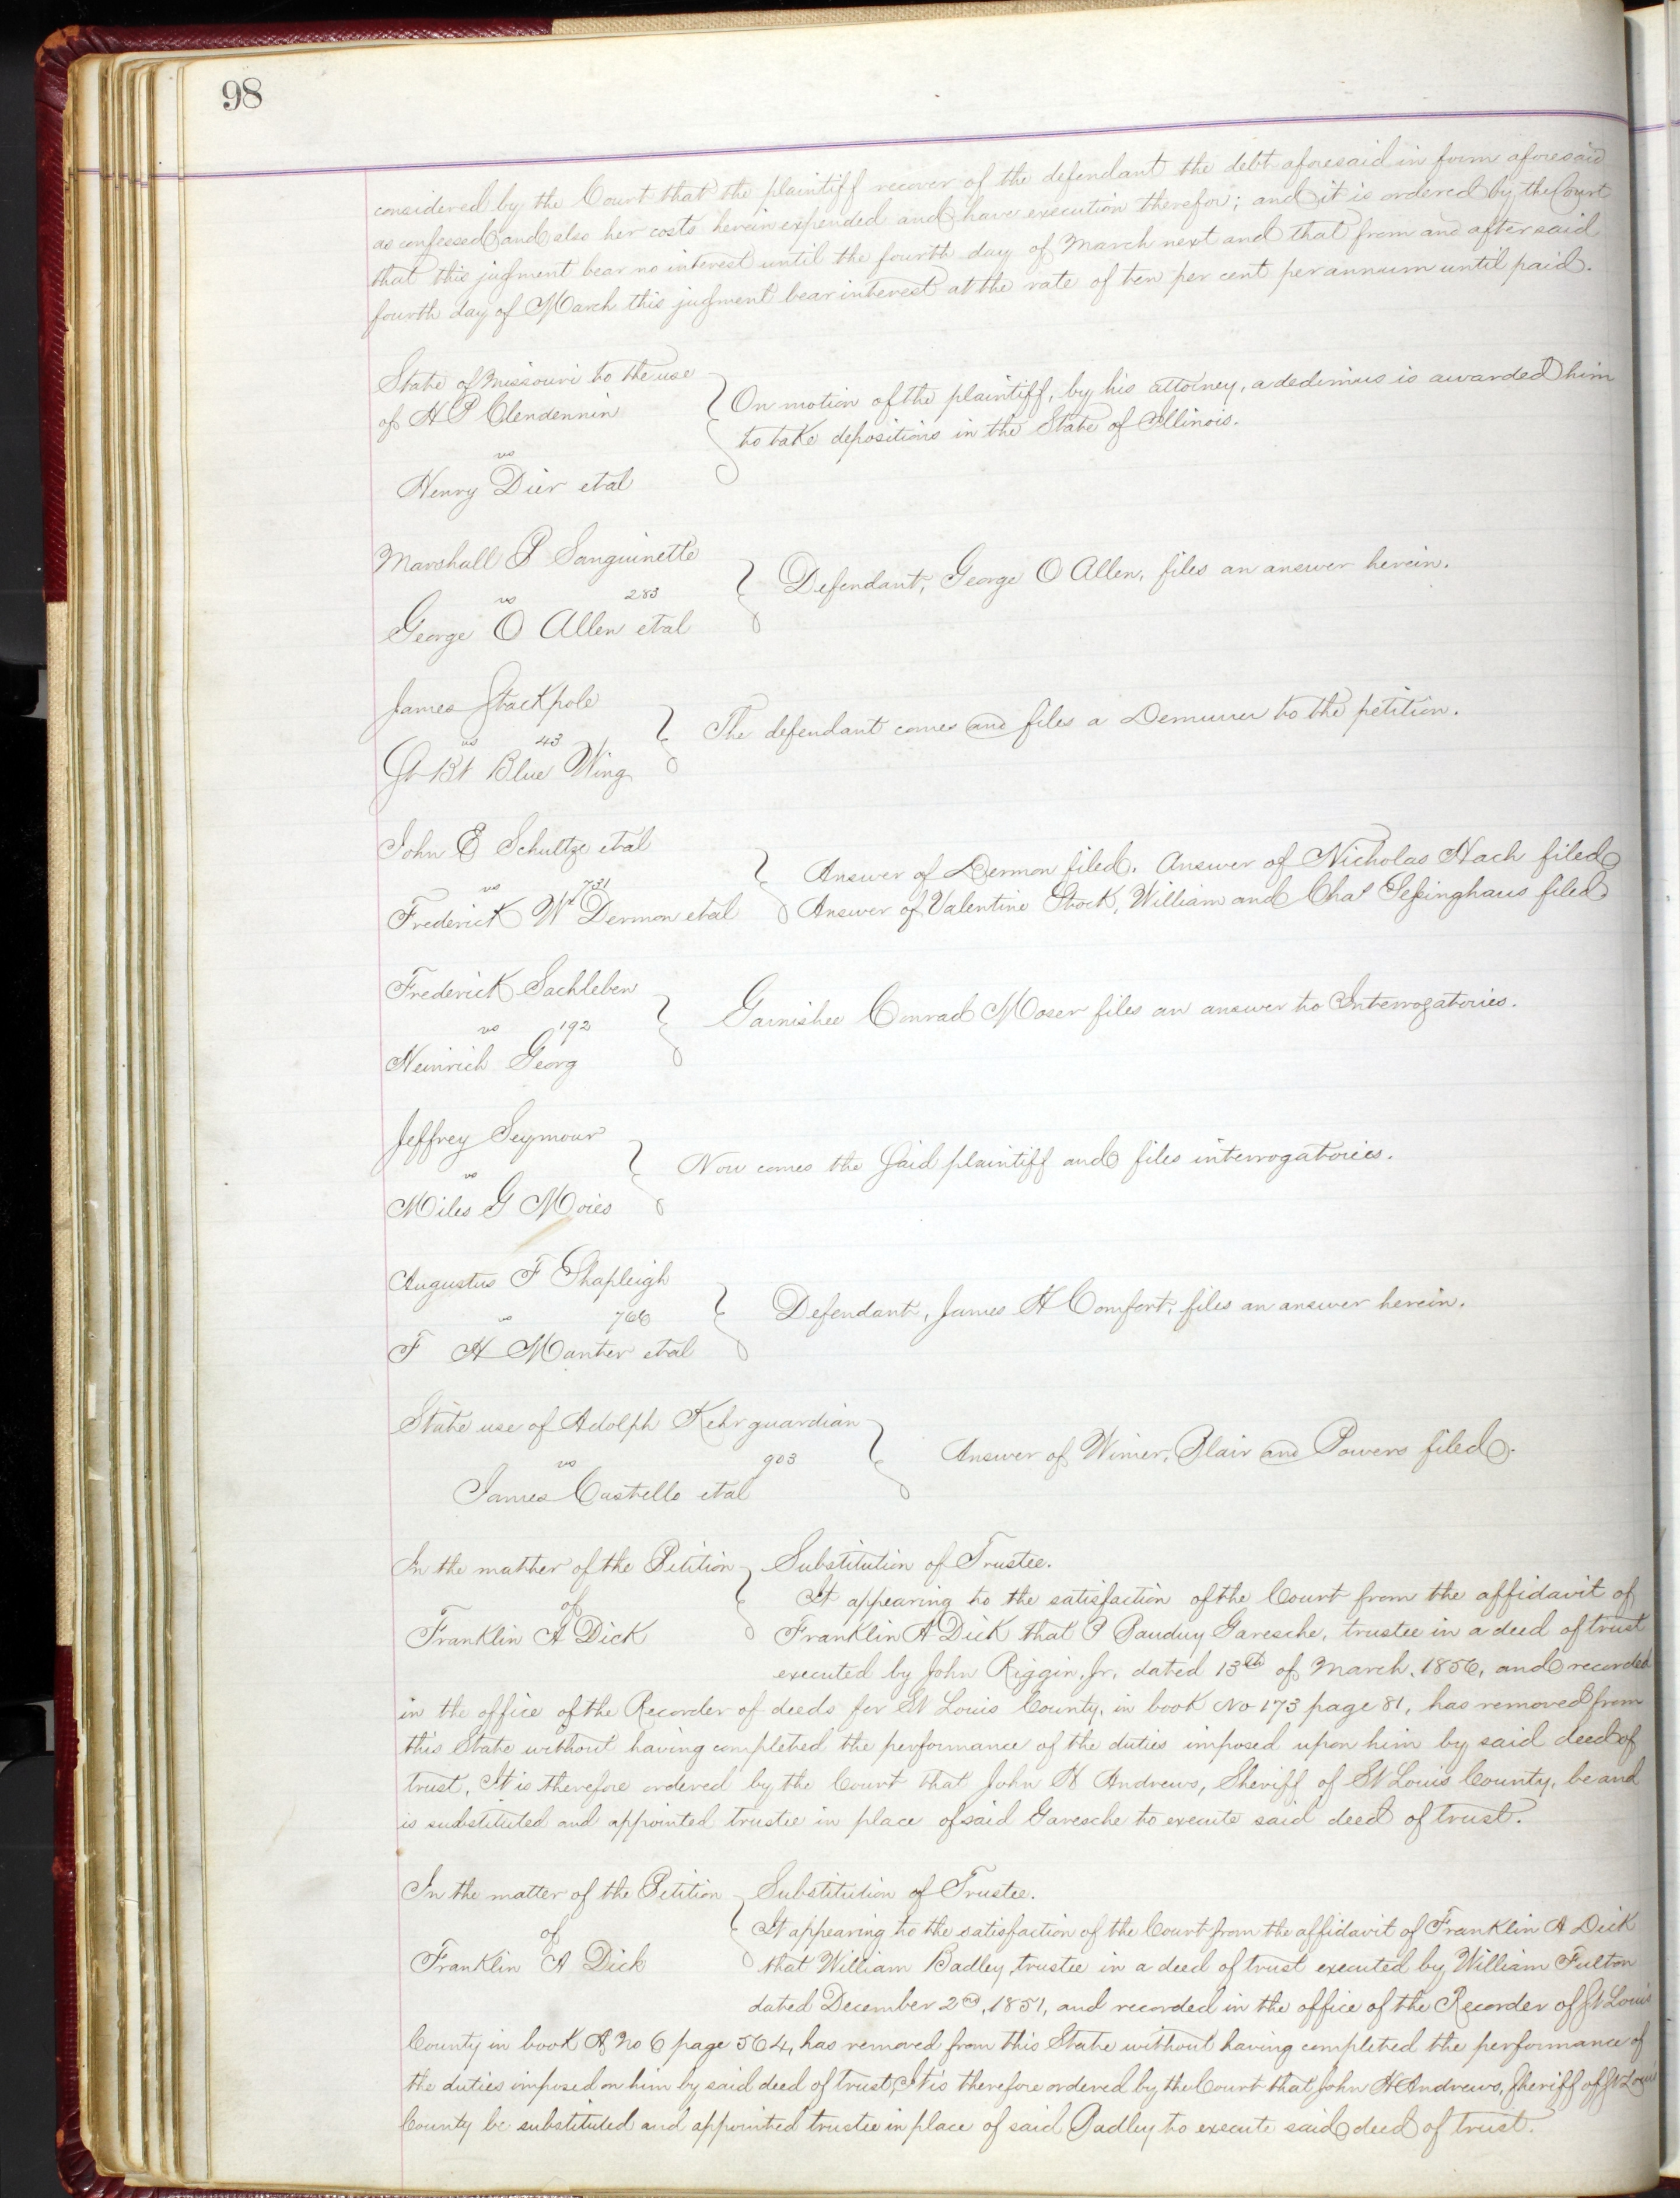 98
considered by the Court that the plaintiff recover of the defendant the debt aforesaid in form aforesaid
as confessed and also her costs herein expended and have execution therefor; and it is ordered by the Court
that this judgment bear no interest until the fourth day of March next and that from and after said
fourth day of March this judgment bear interest at the rate of ten per cent per annum until paid.
State of Missouri to the use
of H P Clendennin
vs
Henry Dier et al
On motion of the plaintiff, by his attorney, a dedimus is awarded him
to take depositions in the State of Illinois.
Marshall P Sanguinette
vs 283
George O Allen et al
Defendant, George O Allen, files an answer herein.
James Stackpole
vs 43
St Bt Blue Wing
The defendant comes and files a Demurrer to the petition.
John E Schultze et al
vs 731
Frederick Wm Dermon et al
Answer of Dermon filed. Answer of Nicholas Hach filed
Answer of Valentine Stock, William and Chas Sessinghaus filed
Frederick Sachleben
vs 192
Heinrich Georg
Garnishee Conrad Moser files an answer to Interrogatories.
Jeffrey Seymour
vs
Miles G Moies
Now comes the said plaintiff and files interrogatories.
Augustus F Shapleigh
vs 766
F H Manter et al
Defendant, James H Comfort, files an answer herein.
State use of Adolph Kehr guardian
vs 903
James Castello et al
Answer of Wimer, Blair and Powers filed.
In the matter of the Petition
of
Franklin A Dick
Substitution of Trustee.
It appearing to the satisfaction of the Court from the affidavit of
Franklin A Dick that P Bauduy Garesche, trustee in a deed of trust
executed by John Riggin, Jr, dated 13th of March, 1856, and recorded
in the office of the Recorder of deeds for St Louis County, in book No 173 page 81, has removed from
this State without having completed the performance of the duties imposed upon him by said deed of
trust, It is therefore ordered by the Court that John H Andrews, Sheriff of St Louis County, be and
is substituted and appointed trustee in place of said Garesche to execute said deed of trust.
In the matter of the Petition
of
Franklin A Dick
Substitution of Trustee.
It appearing to the satisfaction of the Court from the affidavit of Franklin A Dick
that William Badley, trustee in a deed of trust executed by William Fulton
dated December 2nd, 1851, and recorded in the office of the Recorder of St Louis
County in book A No 6 page 564, has removed from this State without having completed the performance of
the duties imposed on him by said deed of trust, It is therefore ordered by the Court that John H Andrews, Sheriff of St Louis
County be substituted and appointed trustee in place of said Badley to execute said deed of trust.